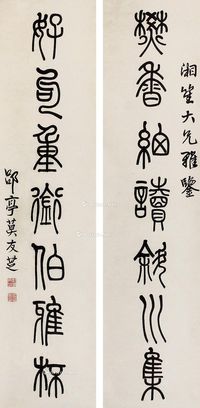 湘笙大兄雅鑒
焚香細讀斜川集
好重銜伯雅桮
郘亭莫友芝